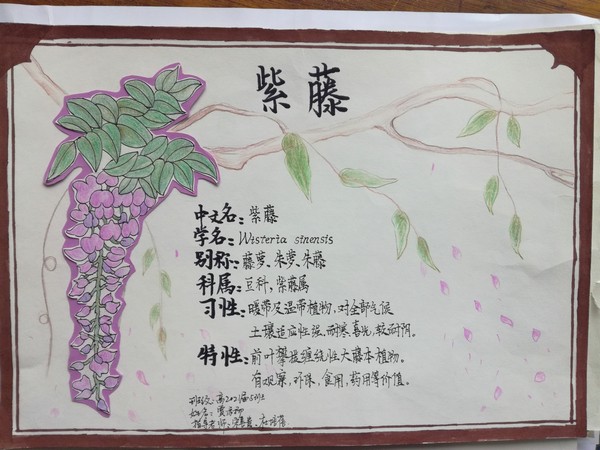 紫藤
中文名:紫藤
学名:Wisteria sinensis
别称:藤萝、朱萝、朱藤
科属:豆科,紫藤属
习性:暖带及温带植物,对全部气候
土壤适应性强,耐寒,喜光,较耐阴。
特性:前叶攀援缠绕性大藤本植物。
有观赏,环保,食用,药用等价值。
班级:高2021届5班
姓名:
指导老师: